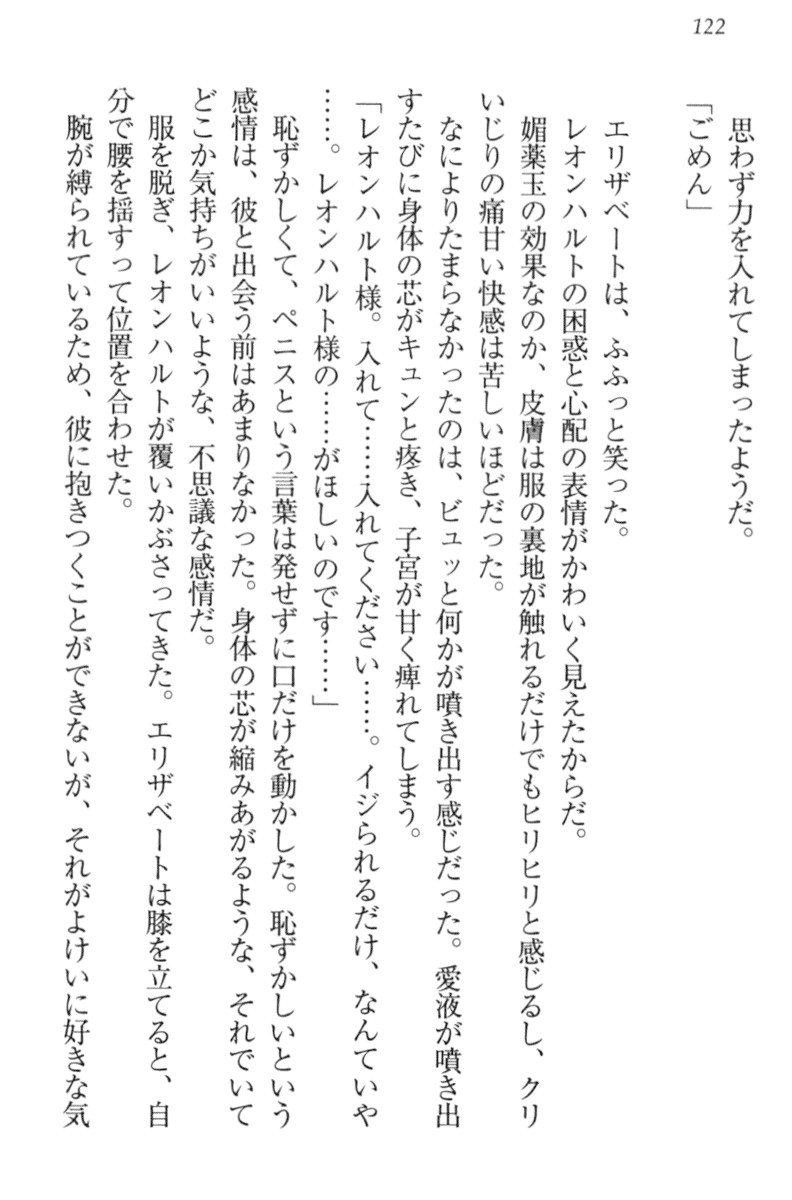 122
思わず力を入れてしまったようだ。
「ごめん」
エリザベートは、ふふっと笑った。
レオンハルトの困惑と心配の表情がかわいく見えたからだ。
媚薬玉の効果なのか、皮膚は服の裏地が触れるだけでもヒリヒリと感じるし、クリ
いじりの痛甘い快感は苦しいほどだった。
なによりたまらなかったのは、ビュッと何かが噴き出す感じだった。愛液が噴き出
すたびに身体の芯がキュンと疼き、子宮が甘く痺れてしまう。
「レオンハルト様。入れて……入れてください……。イジられるだけ、なんていや
……。レオンハルト様の……がほしいのです……」
恥ずかしくて、ペニスという言葉は発せずに口だけを動かした。恥ずかしいという
感情は、彼と出会う前はあまりなかった。身体の芯が縮みあがるような、それでいて
どこか気持ちがいいような、不思議な感情だ。
服を脱ぎ、レオンハルトが覆いかぶさってきた。エリザベートは膝を立てると、自
分で腰を揺すって位置を合わせた。
腕が縛られているため、彼に抱きつくことができないが、それがよけいに好きな気